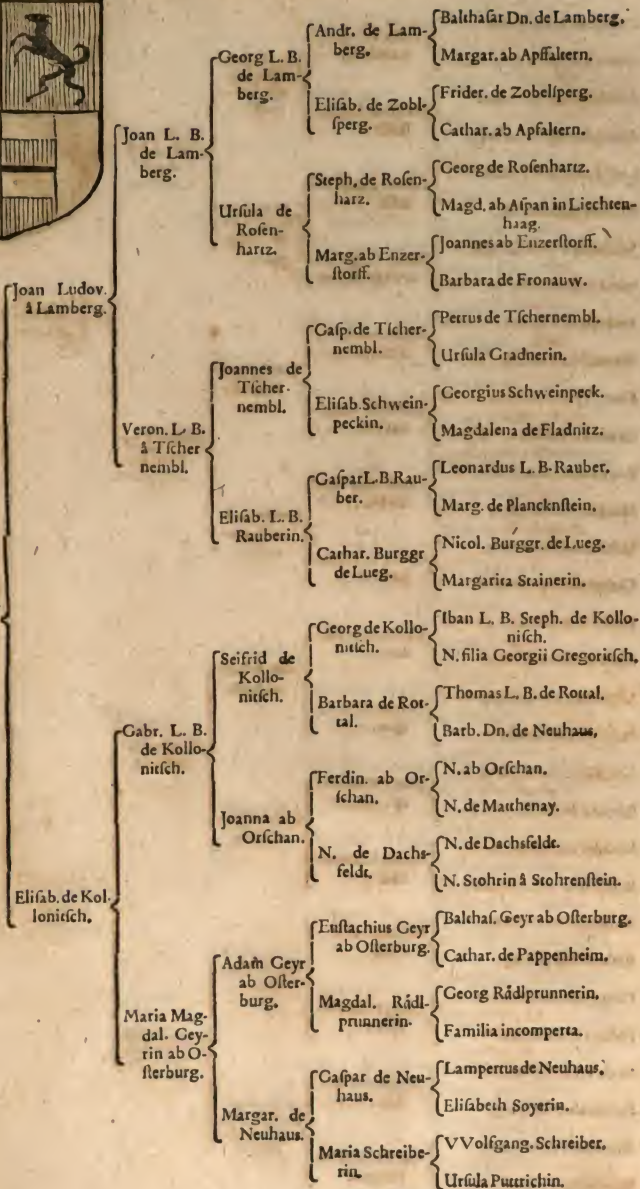 Joan Ludov.
â Lamberg.
Elisab. de Kol-
lonitſch.
Joan L. B.
de Lam-
berg.
Veron. L. B.
â Tſcher
nembl.
Gabr. L. B.
de Kollo-
nitſch.
Maria Mag-
dal. Gey-
rin ab O-
ſterburg.
Georg L. B.
de Lam-
berg.
Urſula de
Roſen-
hartz.
Joannes de
Tſcher-
nembl.
Eliſab. L. B.
Rauberin.
Seifrid de
Kollo-
nitſch.
Joanna ab
Orſchan.
Adam Geyr
ab Oſter-
burg.
Margar. de
Neuhaus.
Andr. de Lam-
berg.
Eliſab. de Zobl-
ſperg.
Steph. de Roſen-
harz.
Marg. ab Enzer-
ſtorff.
Caſp. de Tſcher-
nembl.
Eliſab. Schwein-
peckin.
Caſpar L. B. Rau-
ber.
Cathar. Burggr
de Lueg.
Georg de Kollo-
nitſch.
Barbara de Rot-
tal.
Ferdin. ab Or-
ſchan.
N. de Dachs-
feldt.
Euſtachius Geyr
ab Oſterburg.
Magdal. Rådl-
prunnerin.
Caſpar de Neu-
haus.
Maria Schreibe-
rin.
Balthaſar Dn. de Lamberg.
Margar. ab Apffaltern.
Frider. de Zobelſperg.
Cathar. ab Apfaltern.
Georg de Roſenhartz.
Magd. ab Aſpan in Liechten-
haag.
Joannes ab Enzerſtorff.
Barbara de Fronauw.
Petrus de Tſchernembl.
Urſula Gradnerin.
Georgius Schweinpeck.
Magdalena de Fladnitz.
Leonardus L. B. Rauber.
Marg. de Plancknſtein.
Nicol. Burggr. de Lueg.
Margarita Stainerin.
Iban L. B. Steph. de Kollo-
niſch.
N. filia Georgii Gregoritſch.
Thomas L. B. de Rottal.
Barb. Dn. de Neuhaus.
N. ab Orſchan.
N. de Matthenay.
N. de Dachsfeldt.
N. Stohrin â Stohrenſtein.
Balthaſ. Geyr ab Oſterburg.
Cathar. de Pappenheim.
Georg Rådlprunnerin.
Familia incomperta.
Lampertus de Neuhaus.
Eliſabeth Soyerin.
VVolfgang. Schreiber.
Urſula Puttrichin.